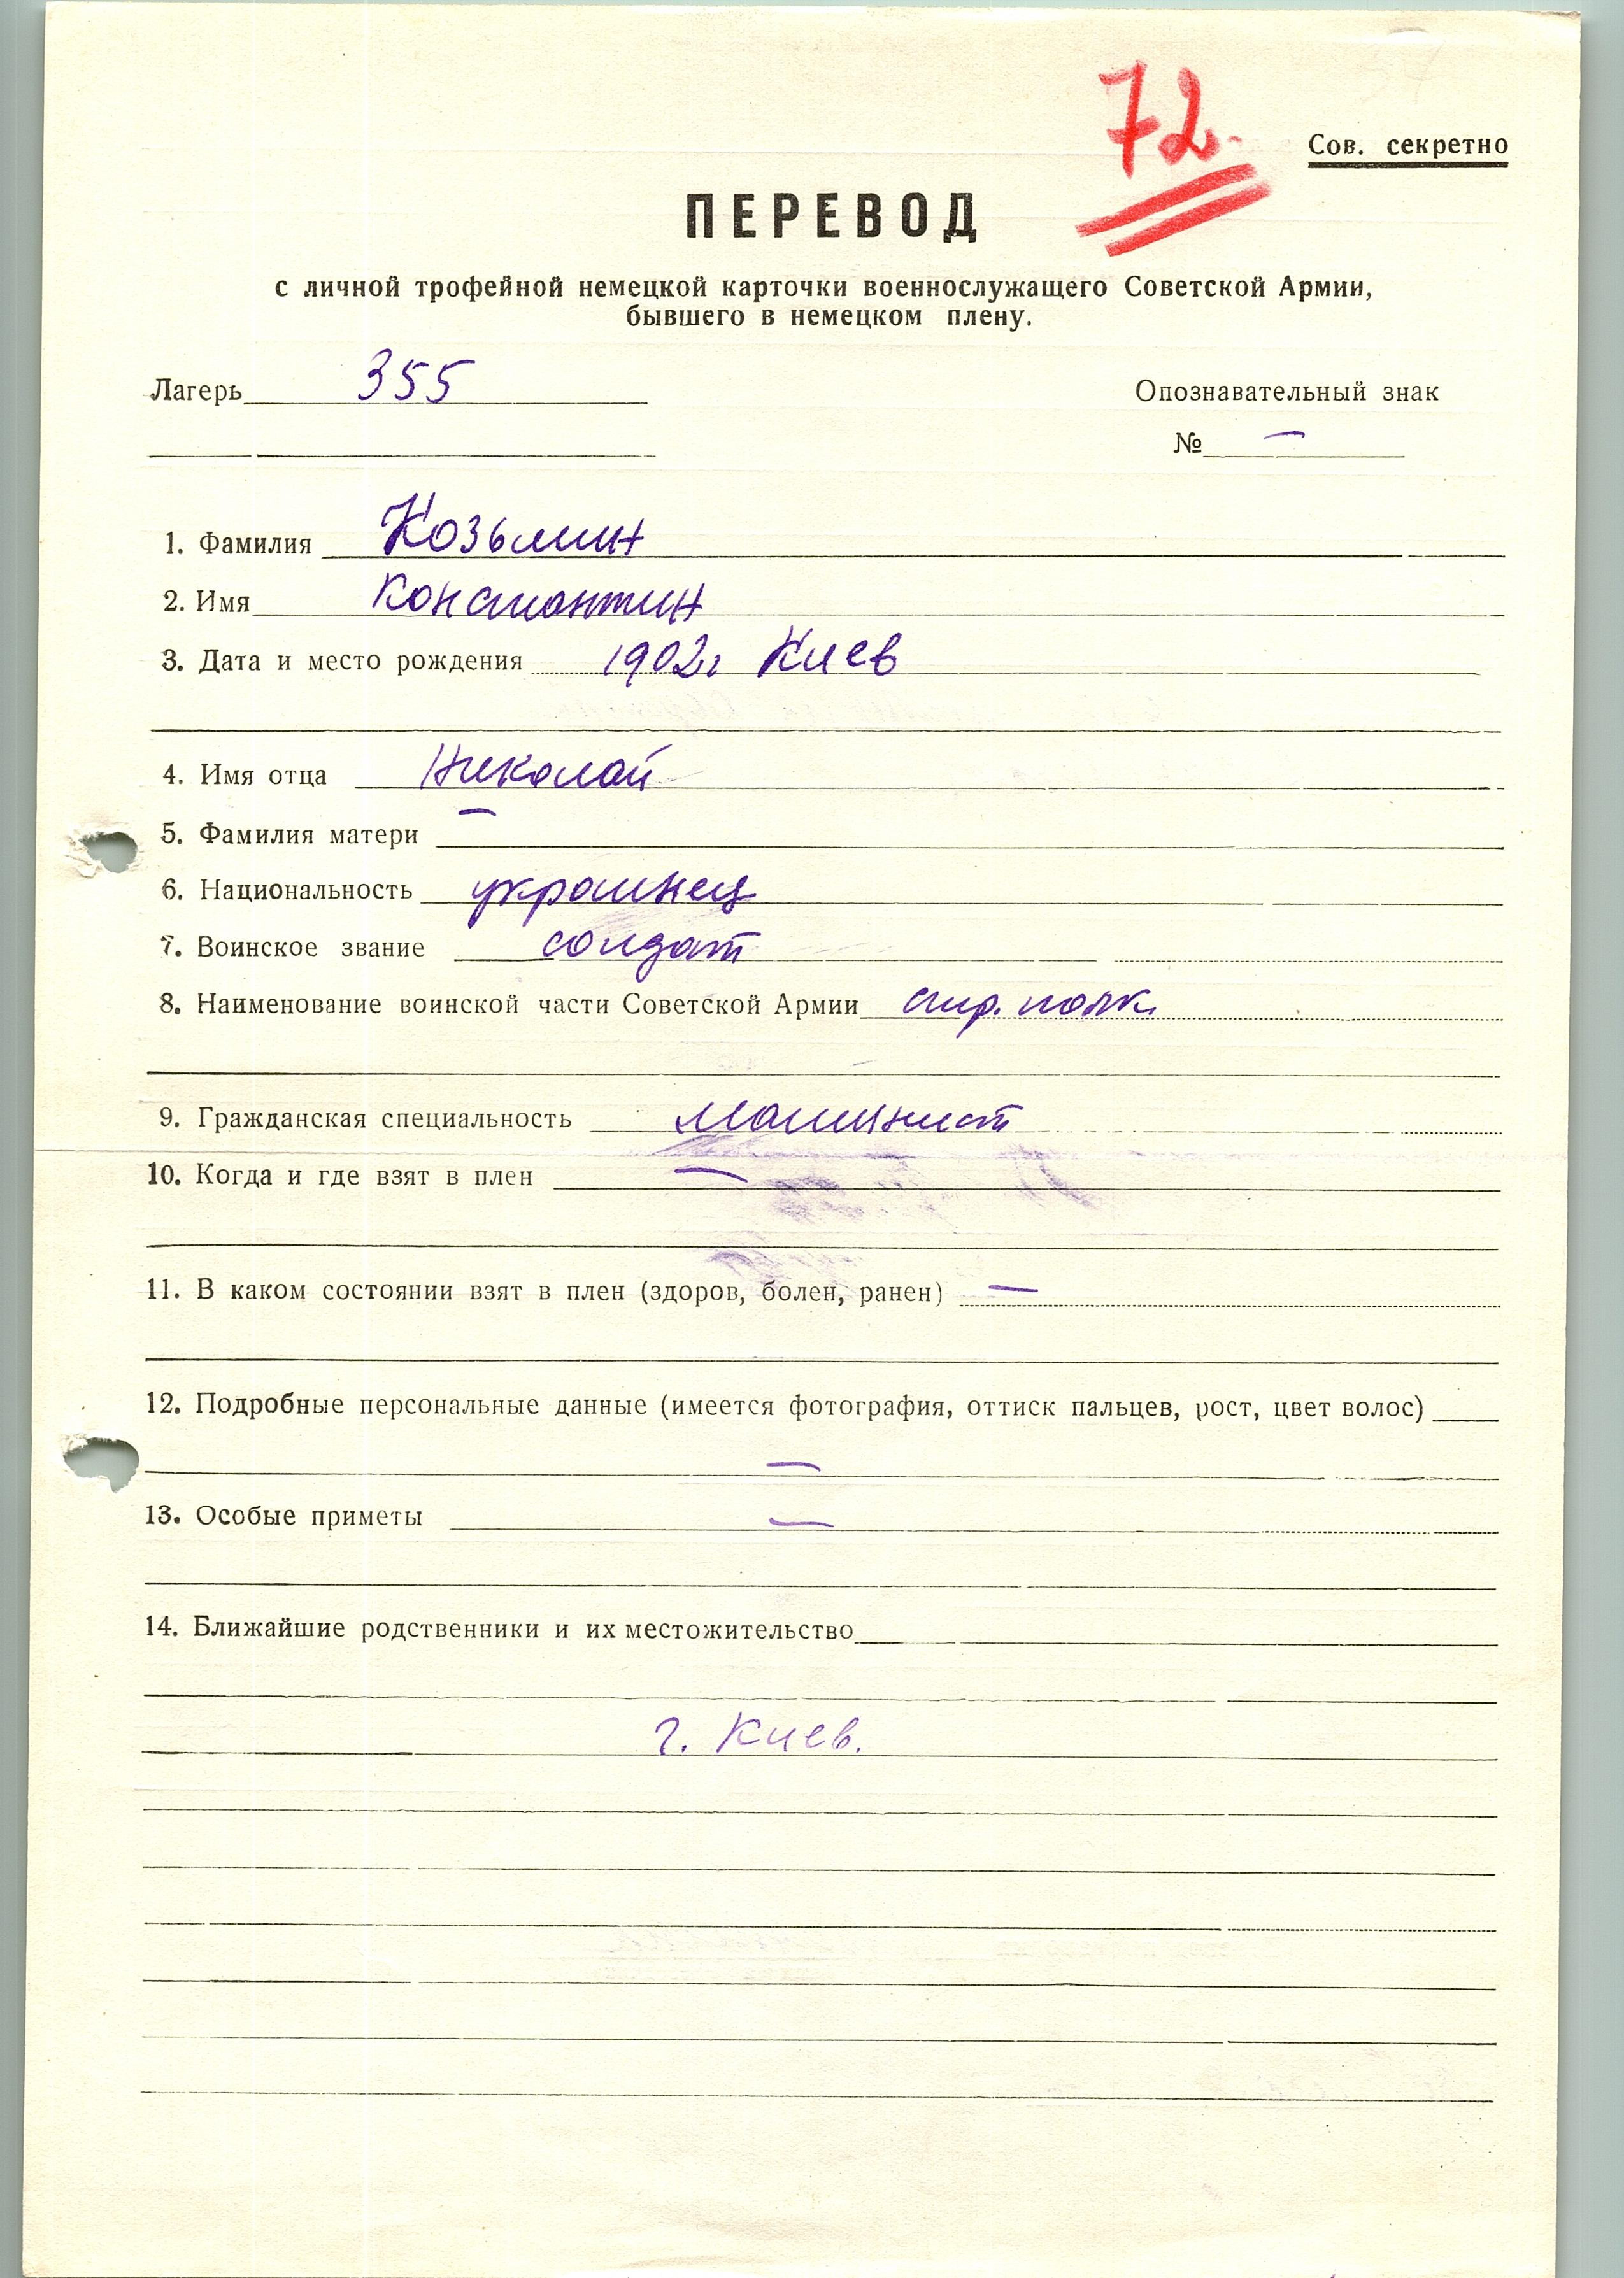 72
Сов. секретно
ПЕРЕВОД
с личной трофейной немецкой карточки военнослужащего Советской Армии,
бывшего в немецком плену.
Лагерь 355
Опознавательный знак
№ —
1. Фамилия Козьмин
2. Имя Константин
3. Дата и место рождения 1902г Киев
4. Имя отца Николай
5. Фамилия матери —
6. Национальность украинец
7. Воинское звание солдат
8. Наименование воинской части Советской Армии стр. полк
9. Гражданская специальность машинист
10. Когда и где взят в плен —
11. В каком состоянии взят в плен (здоров, болен, ранен) —
12. Подробные персональные данные (имеется фотография, оттиск пальцев, рост, цвет волос)
—
13. Особые приметы —
14. Ближайшие родственники и их местожительство
г. Киев.